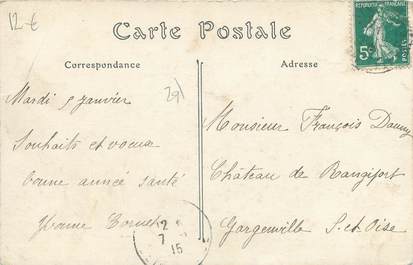 12-€
Carte Postale
Correspondance
Adresse
REPUBLIQUE FRANÇAISE
5c
POSTES
291
Mardi 5 janvier
Souhaits et voeux
bonne année santé
Yvonne
Monsieur François
Château de Rangiport
Gargenville S. et Oise
2
7
15